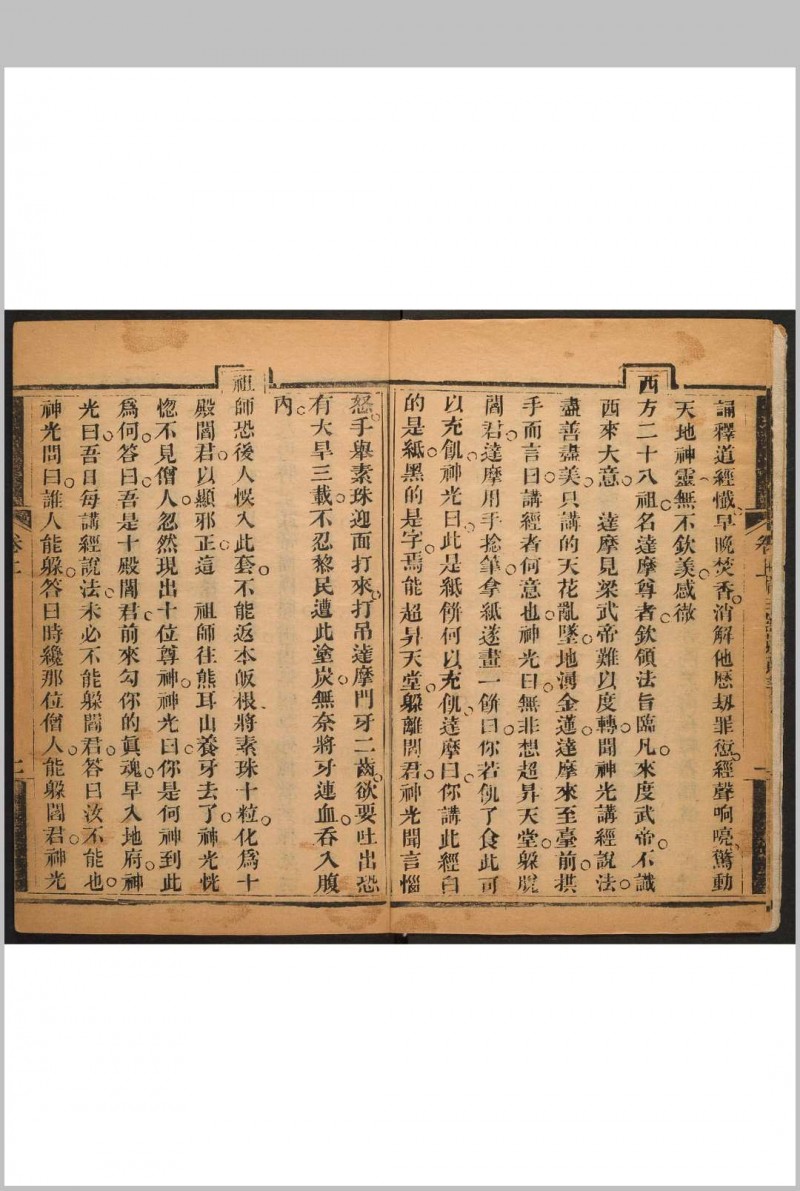 誦釋道經懺。早晚焚香。消解他歷刼罪愆。經聲响喨。驚動
天地神靈。無不欽羡感徹
西方二十八祖。名達摩尊者。欽領法旨。臨凡。來度武帝。不識
西來大意。 達摩見梁武帝難以度轉。聞神光講經說法。
盡善盡美。只講的天花亂墜。地湧金蓮。達摩來至臺前。拱
手而言曰。講經者何意也。神光曰。無非想超昇天堂。躲脫
閻君。達摩用手捻筆。拿紙遂畫一餅曰。你若飢了。食此可
以充飢。神光曰。此是紙餅。何以充飢。達摩曰。你講此經。白
的是紙。黑的是字。焉能超昇天堂。躲離閻君。神光聞言惱
怒。手舉素珠。迎面打來。打吊達摩門牙二齒。欲要吐出。恐
有大旱三載。不忍黎民遭此塗炭。無奈將牙連血。吞入腹
內。
祖師恐後人悞入此套。不能返本皈根。將素珠十粒。化爲十
殿閻君。以顯邪正。這 祖師往熊耳山養牙去了。神光恍
惚不見僧人。忽然現出十位尊神。神光曰。你是何神到此
爲何。答曰。吾是十殿閻君。前來勾你的眞魂。早入地府。神
光曰。吾日每講經說法。未必不能躲閻君。答曰。汝不能也。
神光問曰。誰人能躲。答曰。時纔那位僧人。能躲閻君。神光
卷上 一
卷上 二